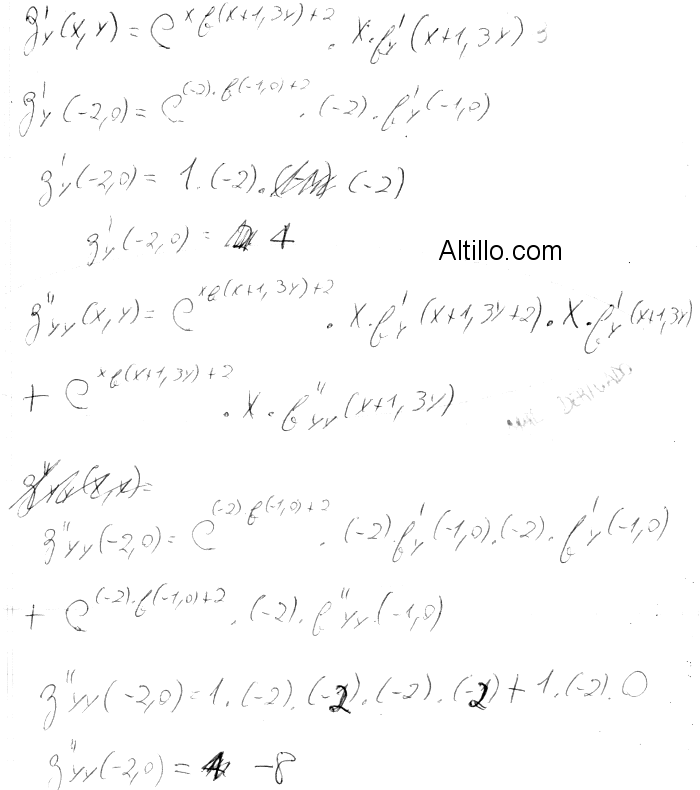 g'y(x,y) = e^(x f(x+1,3y)+2) . x.f'y(x+1,3y)
g'y(-2,0) = e^((-2).f(-1,0)+2) . (-2).f'y(-1,0)
g'y(-2,0) = 1.(-2).(-2)
g'y(-2,0) = 4
Altillo.com
g''yy(x,y) = e^(xf(x+1,3y)+2) . x.f'y(x+1,3y+2).x.f'y(x+1,3y)
+ e^(xf(x+1,3y)+2) . x.f''yy(x+1,3y)
DERIVADA
g''yy(-2,0) = e^((-2)f(-1,0)+2) . (-2)f'y(-1,0).(-2).f'y(-1,0)
+ e^((-2).f(-1,0)+2) . (-2).f''yy(-1,0)
g''yy(-2,0) = 1.(-2).(-2).(-2).(-2) + 1.(-2).0
g''yy(-2,0) = -8